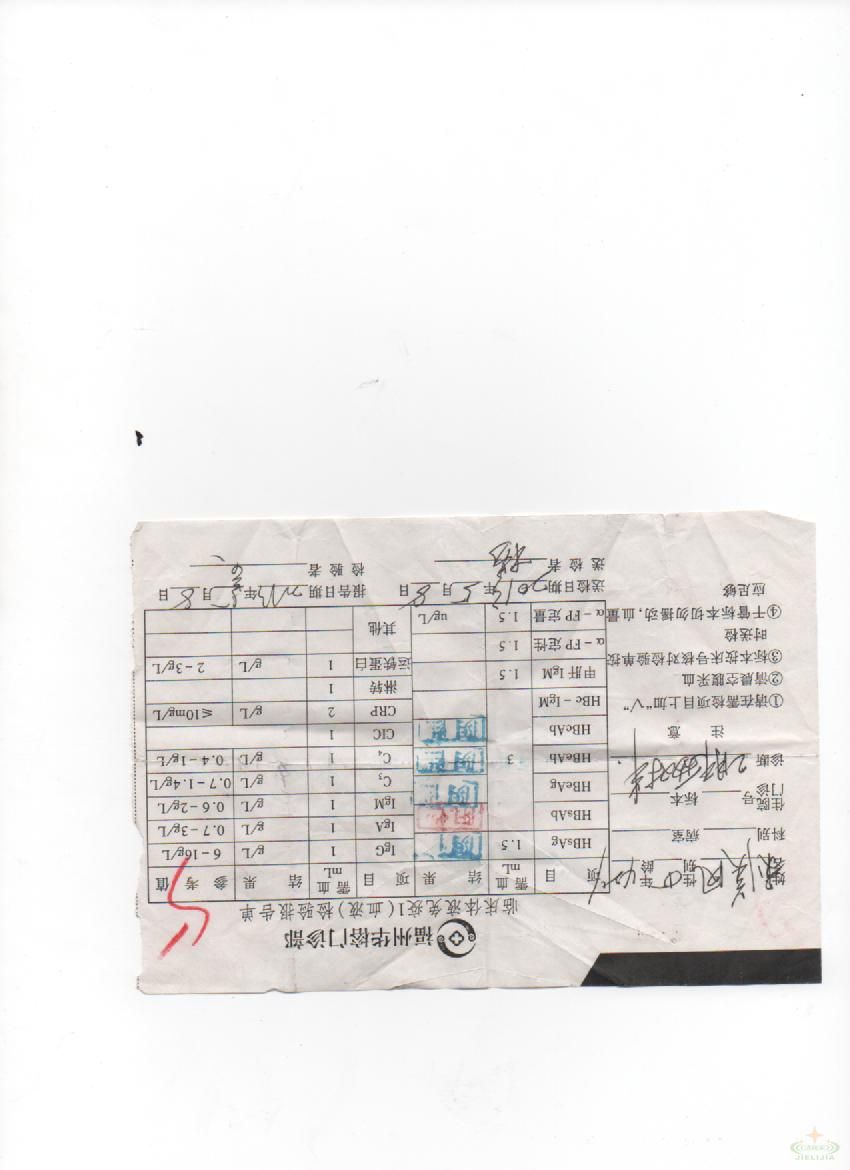 福州华侨门诊部
临床体液免疫1(血液)检验报告单
姓名 性别 年龄
科别 病室
住院号
门诊 标本
诊断
注 意
①请在需检项目上加“√”
②清晨空腹采血
③标本按床号核对检验单按时送检
④干管标本切勿摇动,血量应足够
项 目 需血mL 结 果 项 目 需血mL 结 果 参 考 值
HBsAg 1.5 阴性 IgG 1 g/L 6-16g/L
HBsAb 阳性 IgA 1 g/L 0.7-3g/L
HBeAg 阴性 IgM 1 g/L 0.6-2g/L
C₃ 1 g/L 0.7-1.4g/L
HBeAb 3 阴性 C₄ 1 g/L 0.4-1g/L
HBcAb 阴性 CIC 1
HBc-IgM CRP 2 g/L ≤10mg/L
甲肝IgM 1.5 淋转 1
α-FP定性 1.5 运铁蛋白 1 g/L 2-3g/L
α-FP定量 1.5 ug/L 其他
送检日期 2013年5月8日 报告日期 2013年5月8日
送检者 检验者
JIELIJIA